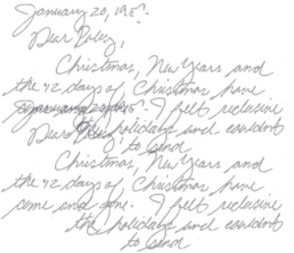 January 20, 198
Dear
Christmas, New Years and
the 12 days of Christmas have
I felt reclusive
the holidays and couldn't
to send
Christmas, New Years and
the 12 days of Christmas have
come and gone. I felt reclusive
the holidays and couldn't
to send